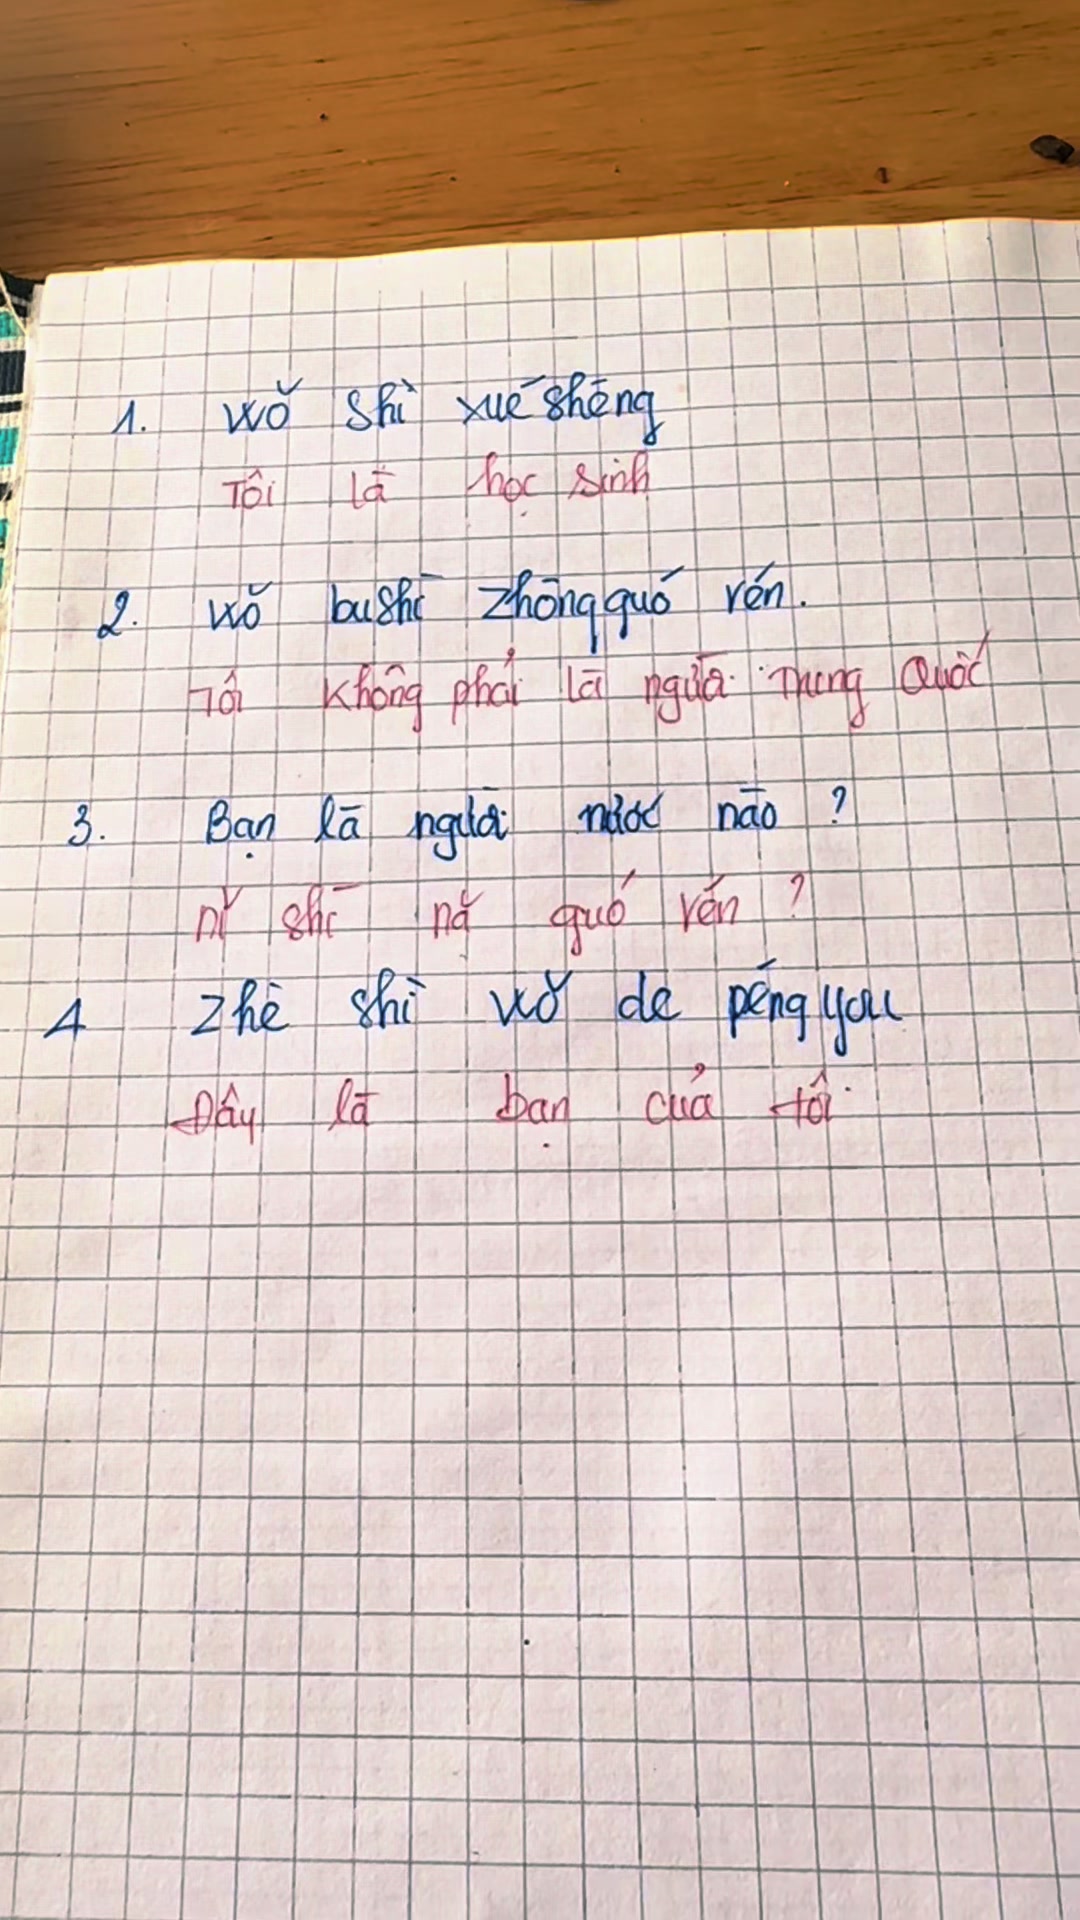 1. wǒ shì xuéshēng
Tôi là học sinh
2. wǒ bushì zhōngguó rén.
Tôi không phải là người Trung Quốc
3. Bạn là người nước nào ?
nǐ shì nǎ guó rén ?
4 zhè shì wǒ de péngyou
Đây là bạn của tôi